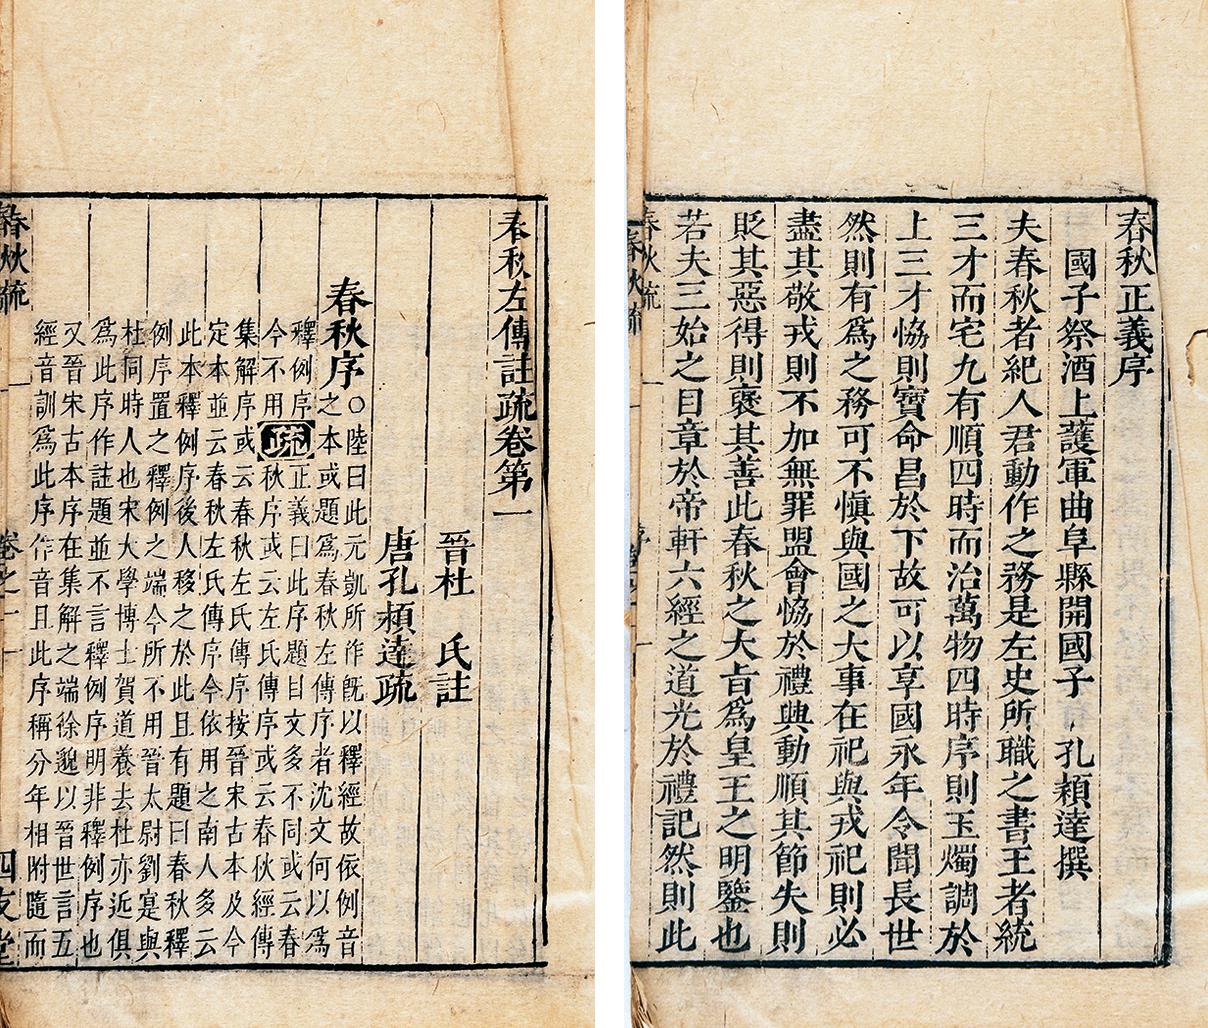 春秋正義序
國子祭酒上護軍曲阜縣開國子 孔頴達撰
夫春秋者紀人君動作之務是左史所職之書王者統
三才而宅九有順四時而治萬物四時序則玉燭調於
上三才恊則寶命昌於下故可以享國永年令聞長世
然則有爲之務可不愼與國之大事在祀與戎祀則必
盡其敬戎則不加無罪盟會恊於禮興動順其節失則
貶其惡得則襃其善此春秋之大㫖爲皇王之明鑒也
若夫三始之目章於帝軒六經之道光於禮記然則此
春秋疏
春秋左傳註疏卷第一
晉杜 氏註
唐孔頴達疏
春秋序○陸曰此元凱所作旣以釋經故依例音
之本或題爲春秋左傳序者沈文何以爲
釋例序
今不用
疏
正義曰此序題目文多不同或云春
秋序或云左氏傳序或云春秋經傳
集解序或云春秋左氏傳序按晉宋古本及今
定本並云春秋左氏傳序今依用之南人多云
此本釋例序後人移之於此且有題曰春秋釋
例序置之釋例之端今所不用晉太尉劉寔與
杜同時人也宋大學博士賀道養去杜亦近俱
爲此序作註題並不言釋例序明非釋例序也
又晉宋古本序在集解之端徐邈以晉世言五
經音訓爲此序作音且此序稱分年相附隨而
春秋疏 卷之一 一 四友堂